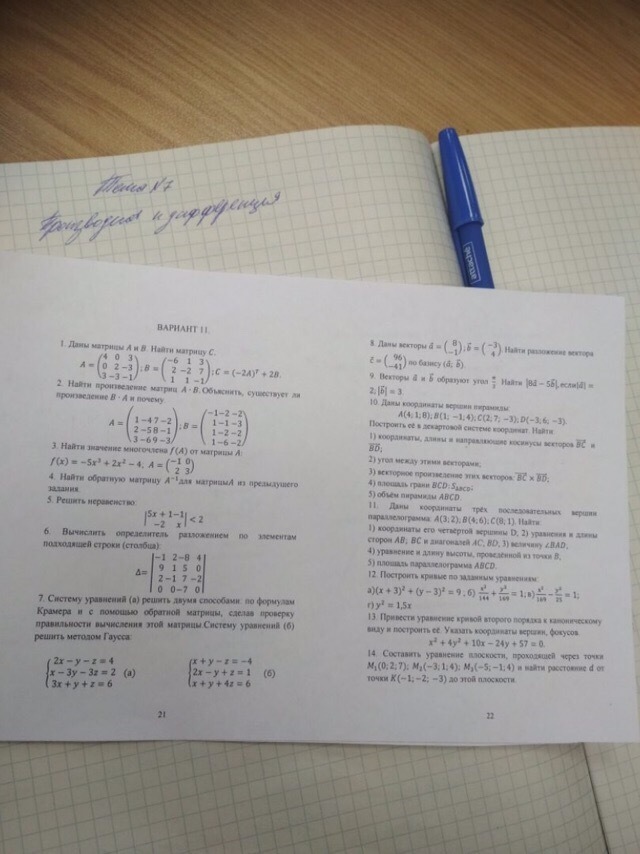 Тема №7
Производная и дифференция
attache
ВАРИАНТ 11.
1. Даны матрицы A и B. Найти матрицу C.
A = (4 0 3
0 2 −3
3 −3 −1) ; B = (−6 1 3
2 −2 7
1 1 −1) ; C = (−2A)ᵀ + 2B.
2. Найти произведение матриц A · B. Объяснить, существует ли
произведение B · A и почему.
A = (1 −4 7 −2
2 −5 8 −1
3 −6 9 −3) ; B = (−1 −2 −2
1 −1 −3
−1 −2 −2
1 −6 −2)
3. Найти значение многочлена f(A) от матрицы A:
f(x) = −5x³ + 2x² − 4, A = (−1 0
2 3)
4. Найти обратную матрицу A⁻¹для матрицыA из предыдущего
задания.
5. Решить неравенство:
|5x + 1 −1
−2 x| < 2
6. Вычислить определитель разложением по элементам
подходящей строки (столбца):
Δ= |−1 2 −8 4
9 1 5 0
2 −1 7 −2
0 0 −7 0|
7. Систему уравнений (а) решить двумя способами: по формулам
Крамера и с помощью обратной матрицы, сделав проверку
правильности вычисления этой матрицы.Систему уравнений (б)
решить методом Гаусса:
{2x − y − z = 4
x − 3y − 3z = 2 (а)
3x + y + z = 6
{x + y − z = −4
2x − y + z = 1 (б)
x + y + 4z = 6
21
8. Даны векторы a⃗ = (8
−1) ; b⃗ = (−3
4) . Найти разложение вектора
c⃗ = (96
−41) по базису (a⃗; b⃗).
9. Векторы a⃗ и b⃗ образуют угол Найти |8a⃗ − 5b⃗|,если|a⃗| =
2; |b⃗| = 3.
10. Даны координаты вершин пирамиды:
A(4; 1; 8); B(1; −1; 4); C(2; 7; −3); D(−3; 6; −3).
Построить её в декартовой системе координат. Найти:
1) координаты, длины и направляющие косинусы векторов BC и
BD;
2) угол между этими векторами;
3) векторное произведение этих векторов: BC × BD;
4) площадь грани BCD:
5) объем пирамиды ABCD.
11. Даны координаты трёх последовательных вершин
параллелограмма: A(3; 2); B(4; 6); C(8; 1). Найти:
1) координаты его четвёртой вершины D; 2) уравнения и длины
сторон AB; BC и диагоналей AC; BD; 3) величину ∠BAD;
4) уравнение и длину высоты, проведённой из точки B;
5) площадь параллелограмма ABCD.
12. Построить кривые по заданным уравнениям:
а)(x + 3)² + (y − 3)² = 9 ; б) x²/144 + y²/169 = 1; в) x²/169 − y²/25 = 1;
г) y² = 1,5x
13. Привести уравнение кривой второго порядка к каноническому
виду и построить её. Указать координаты вершин, фокусов.
x² + 4y² + 10x − 24y + 57 = 0.
14. Составить уравнение плоскости, проходящей через точки
M₁(0; 2; 7); M₂(−3; 1; 4); M₃(−5; −1; 4) и найти расстояние d от
точки K(−1; −2; −3) до этой плоскости.
22